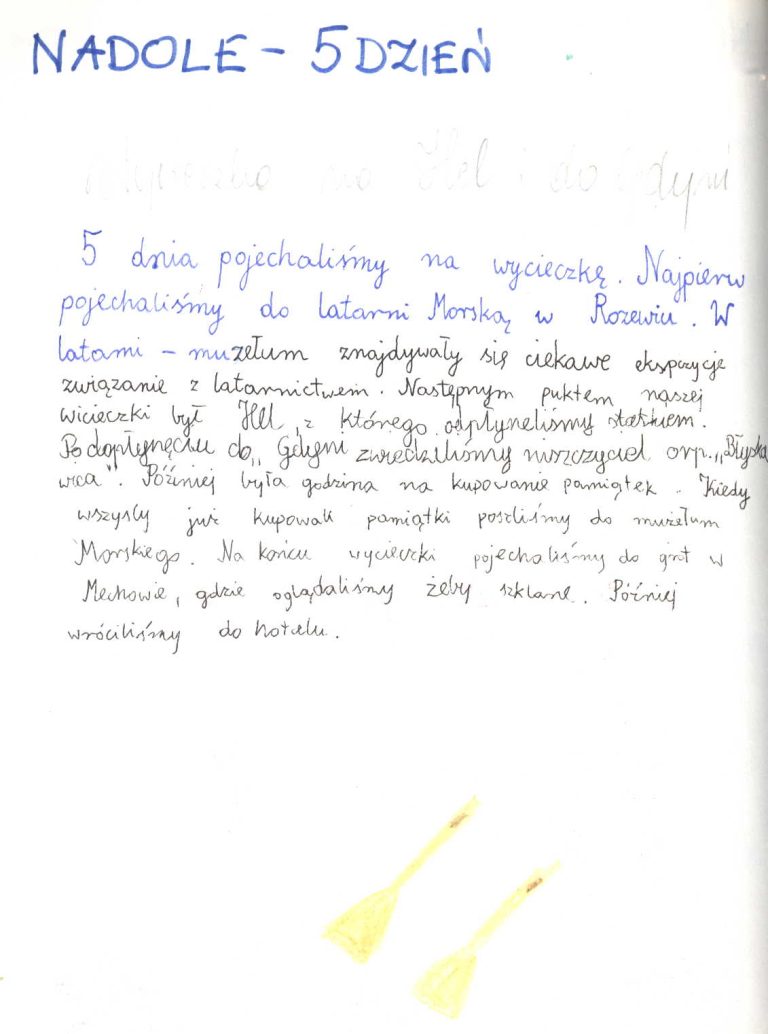 NADOLE - 5 DZIEŃ
Wycieczka na Hel i do Gdyni
5 dnia pojechaliśmy na wycieczkę. Najpierw
pojechaliśmy do latarni Morską w Rozewiu. W
latarni - muzełum znajdywały się ciekawe ekspozycje
związanie z latarnictwem. Następnym puktem naszej
wicieczki był Hel, z którego odpłyneliśmy statkiem.
Po dopłynęciu do,, Gdyni zwiedziliśmy niszczyciel orp. „Błyska
wica". Później była godzina na kupowanie pamiątek. Kiedy
wszyscy już kupowali pamiątki poszliśmy do muzełum
Morskiego. Na końcu wycieczki pojechaliśmy do grot w
Mechowie, gdzie oglądaliśmy żeby szklane. Później
wróciliśmy do hotelu.